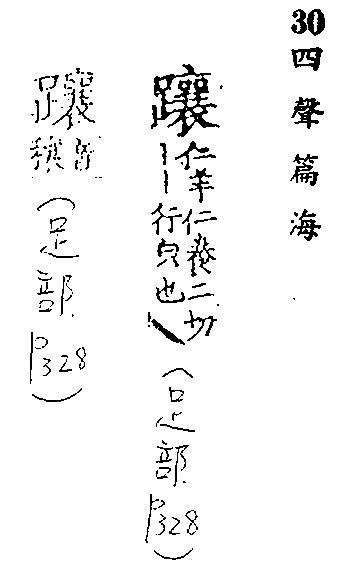 30 四聲篇海
躟 仁羊仁養二切
｜｜行皃也
(足部 P328)
躟 音
穰
(足部 P328)